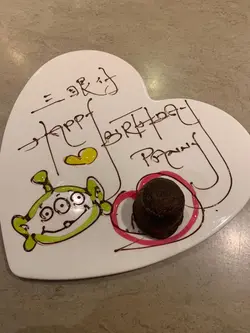 三眼仔
HAPPY
BIRTHDAY
PENNY